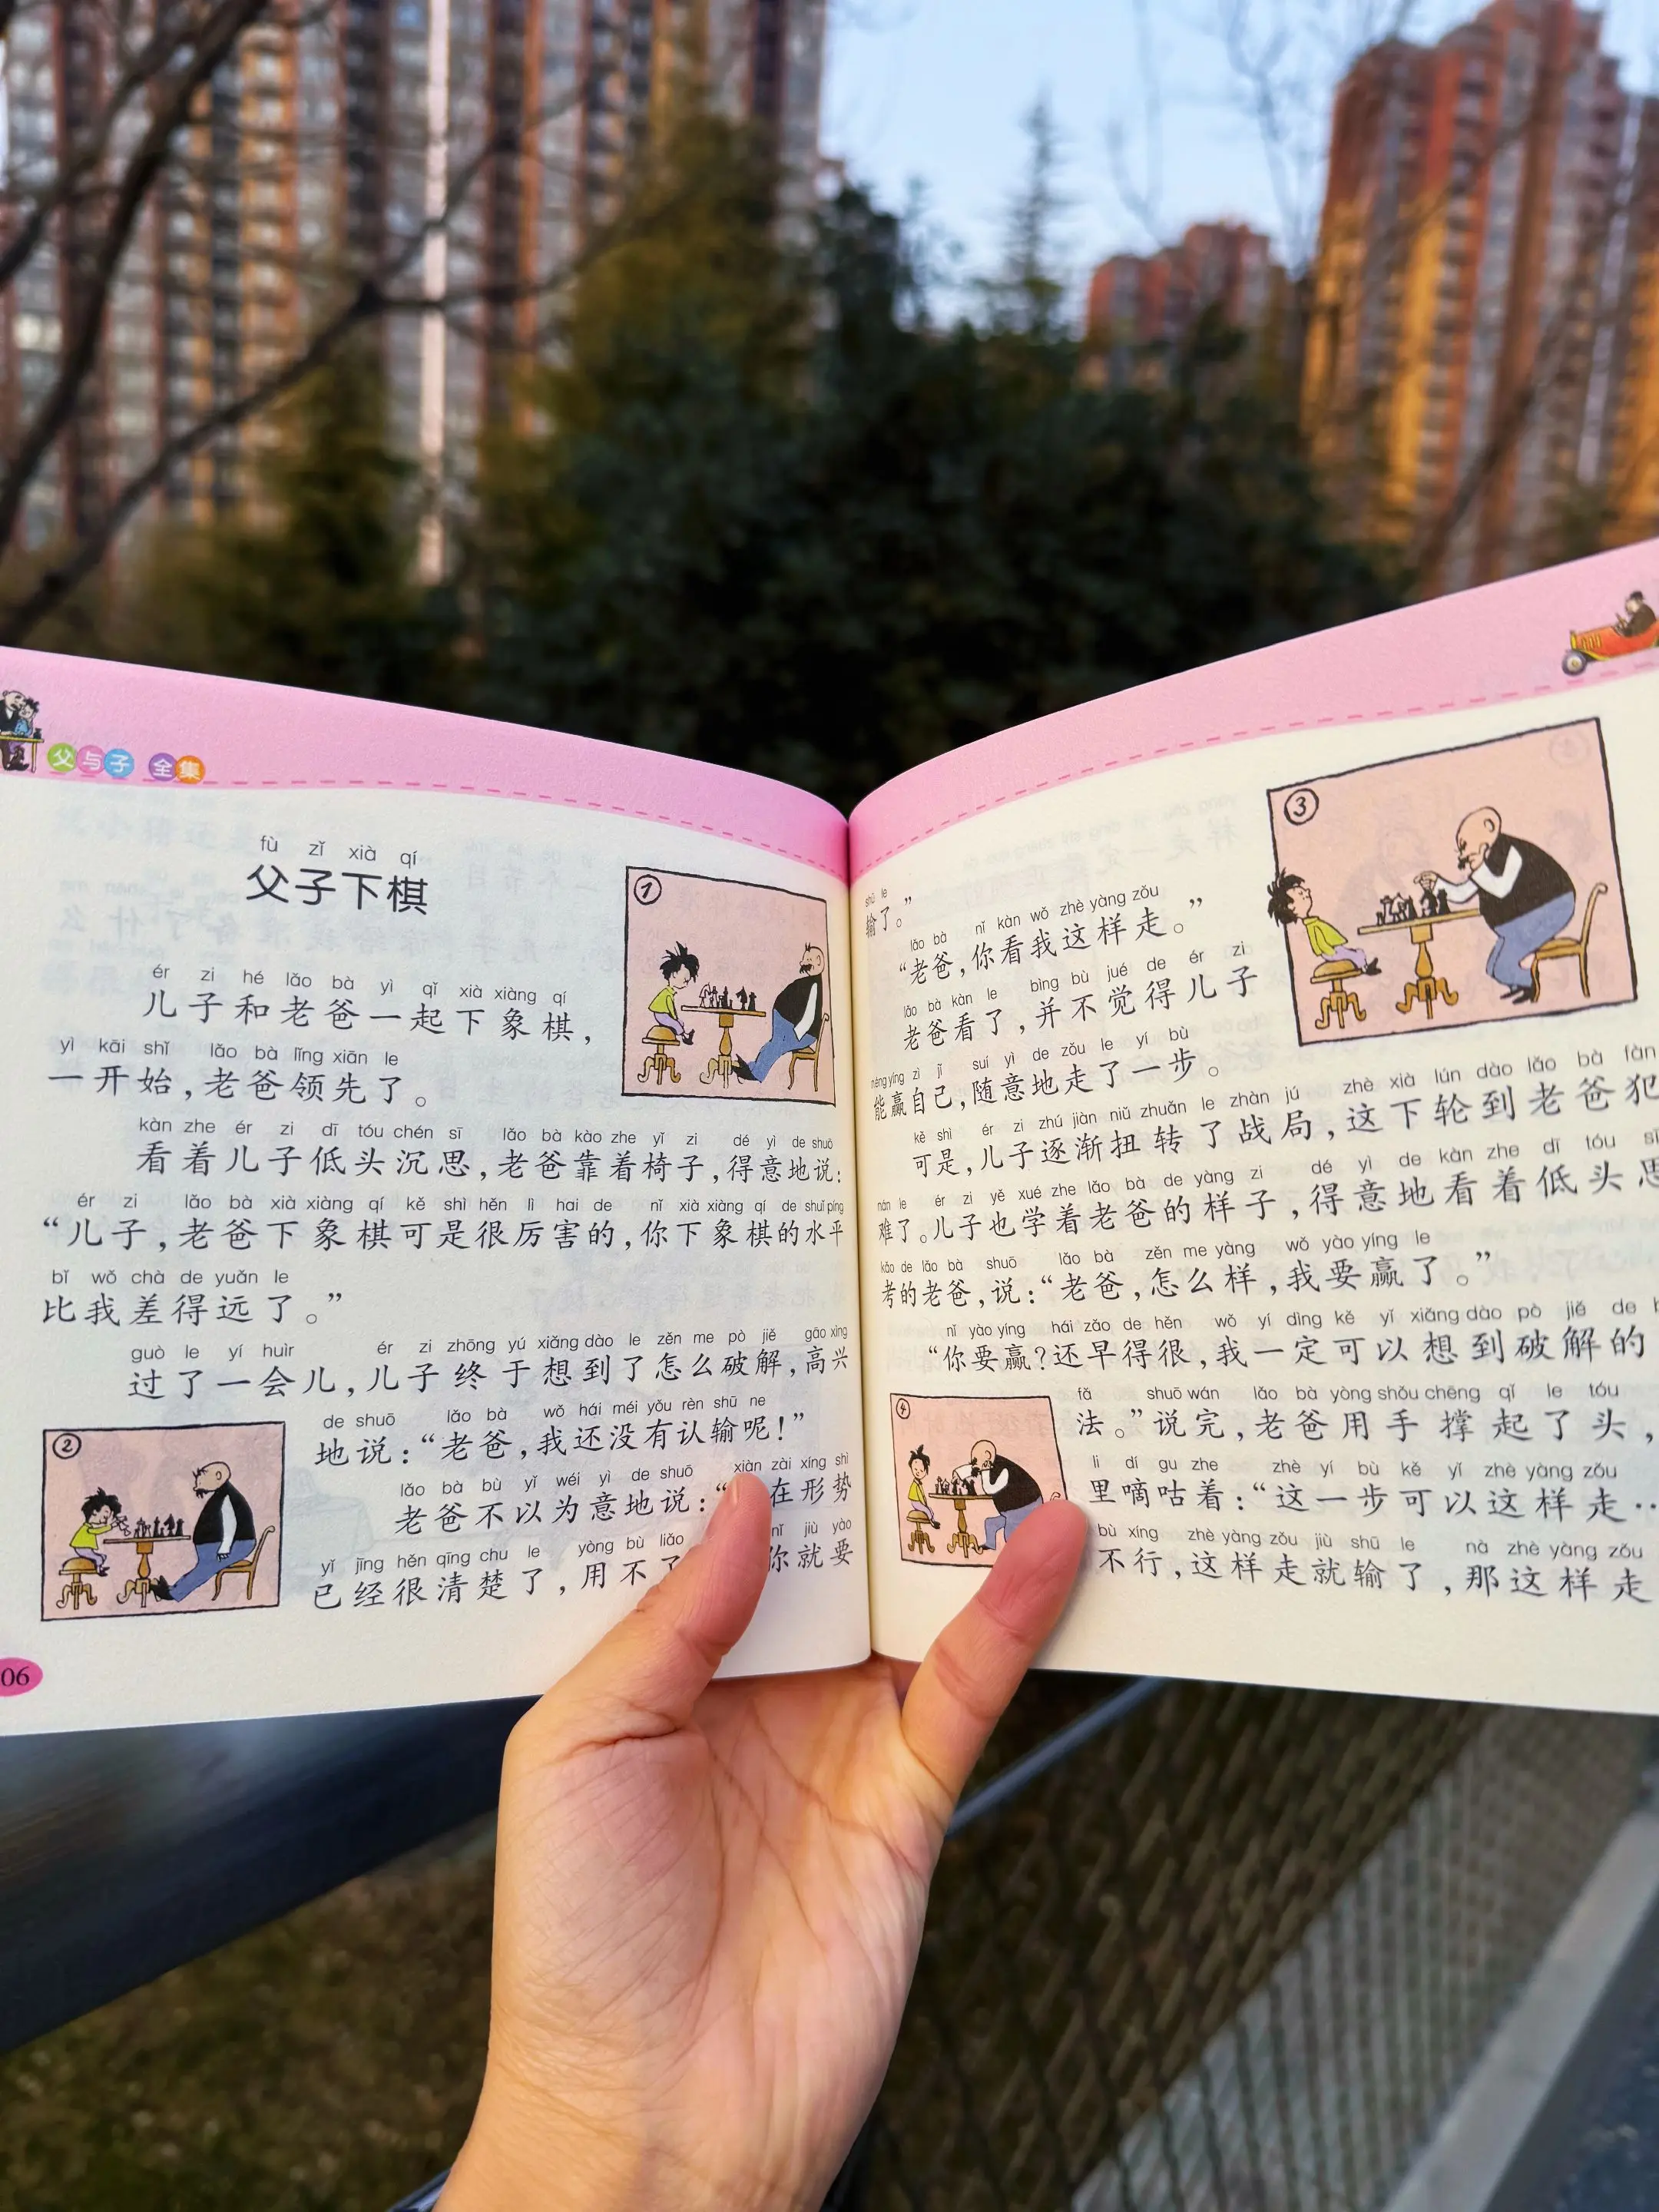 父与子 全集
fù zǐ xià qí
父子下棋
①
ér zi hé lǎo bà yì qǐ xià xiàng qí
儿子和老爸一起下象棋，
yì kāi shǐ lǎo bà lǐng xiān le
一开始，老爸领先了。
kàn zhe ér zi dī tóu chén sī lǎo bà kào zhe yǐ zi dé yì de shuō
看着儿子低头沉思，老爸靠着椅子，得意地说：
ér zi lǎo bà xià xiàng qí kě shì hěn lì hai de nǐ xià xiàng qí de shuǐ píng
“儿子，老爸下象棋可是很厉害的，你下象棋的水平
bǐ wǒ chà de yuǎn le
比我差得远了。”
guò le yí huìr ér zi zhōng yú xiǎng dào le zěn me pò jiě gāo xìng
过了一会儿，儿子终于想到了怎么破解，高兴
②
de shuō lǎo bà wǒ hái méi yǒu rèn shū ne
地说：“老爸，我还没有认输呢！”
lǎo bà bù yǐ wéi yì de shuō xiàn zài xíng shì
老爸不以为意地说：“在形势
yǐ jīng hěn qīng chu le yòng bù liǎo nǐ jiù yào
已经很清楚了，用不了你就要
06
shū le
输了。”
③
lǎo bà nǐ kàn wǒ zhè yàng zǒu
“老爸，你看我这样走。”
lǎo bà kàn le bìng bù jué de ér zi
老爸看了，并不觉得儿子
néng yíng zì jǐ suí yì de zǒu le yí bù
能赢自己，随意地走了一步。
kě shì ér zi zhú jiàn niǔ zhuǎn le zhàn jú zhè xià lún dào lǎo bà fàn
可是，儿子逐渐扭转了战局，这下轮到老爸犯
nán le ér zi yě xué zhe lǎo bà de yàng zi dé yì de kàn zhe dī tóu sī
难了。儿子也学着老爸的样子，得意地看着低头思
kǎo de lǎo bà shuō lǎo bà zěn me yàng wǒ yào yíng le
考的老爸，说：“老爸，怎么样，我要赢了。”
nǐ yào yíng hái zǎo de hěn wǒ yí dìng kě yǐ xiǎng dào pò jiě de
“你要赢？还早得很，我一定可以想到破解的
④
fǎ shuō wán lǎo bà yòng shǒu chēng qǐ le tóu
法。”说完，老爸用手撑起了头，
li dí gu zhe zhè yí bù kě yǐ zhè yàng zǒu
里嘀咕着：“这一步可以这样走…
bù xíng zhè yàng zǒu jiù shū le nà zhè yàng zǒu
不行，这样走就输了，那这样走